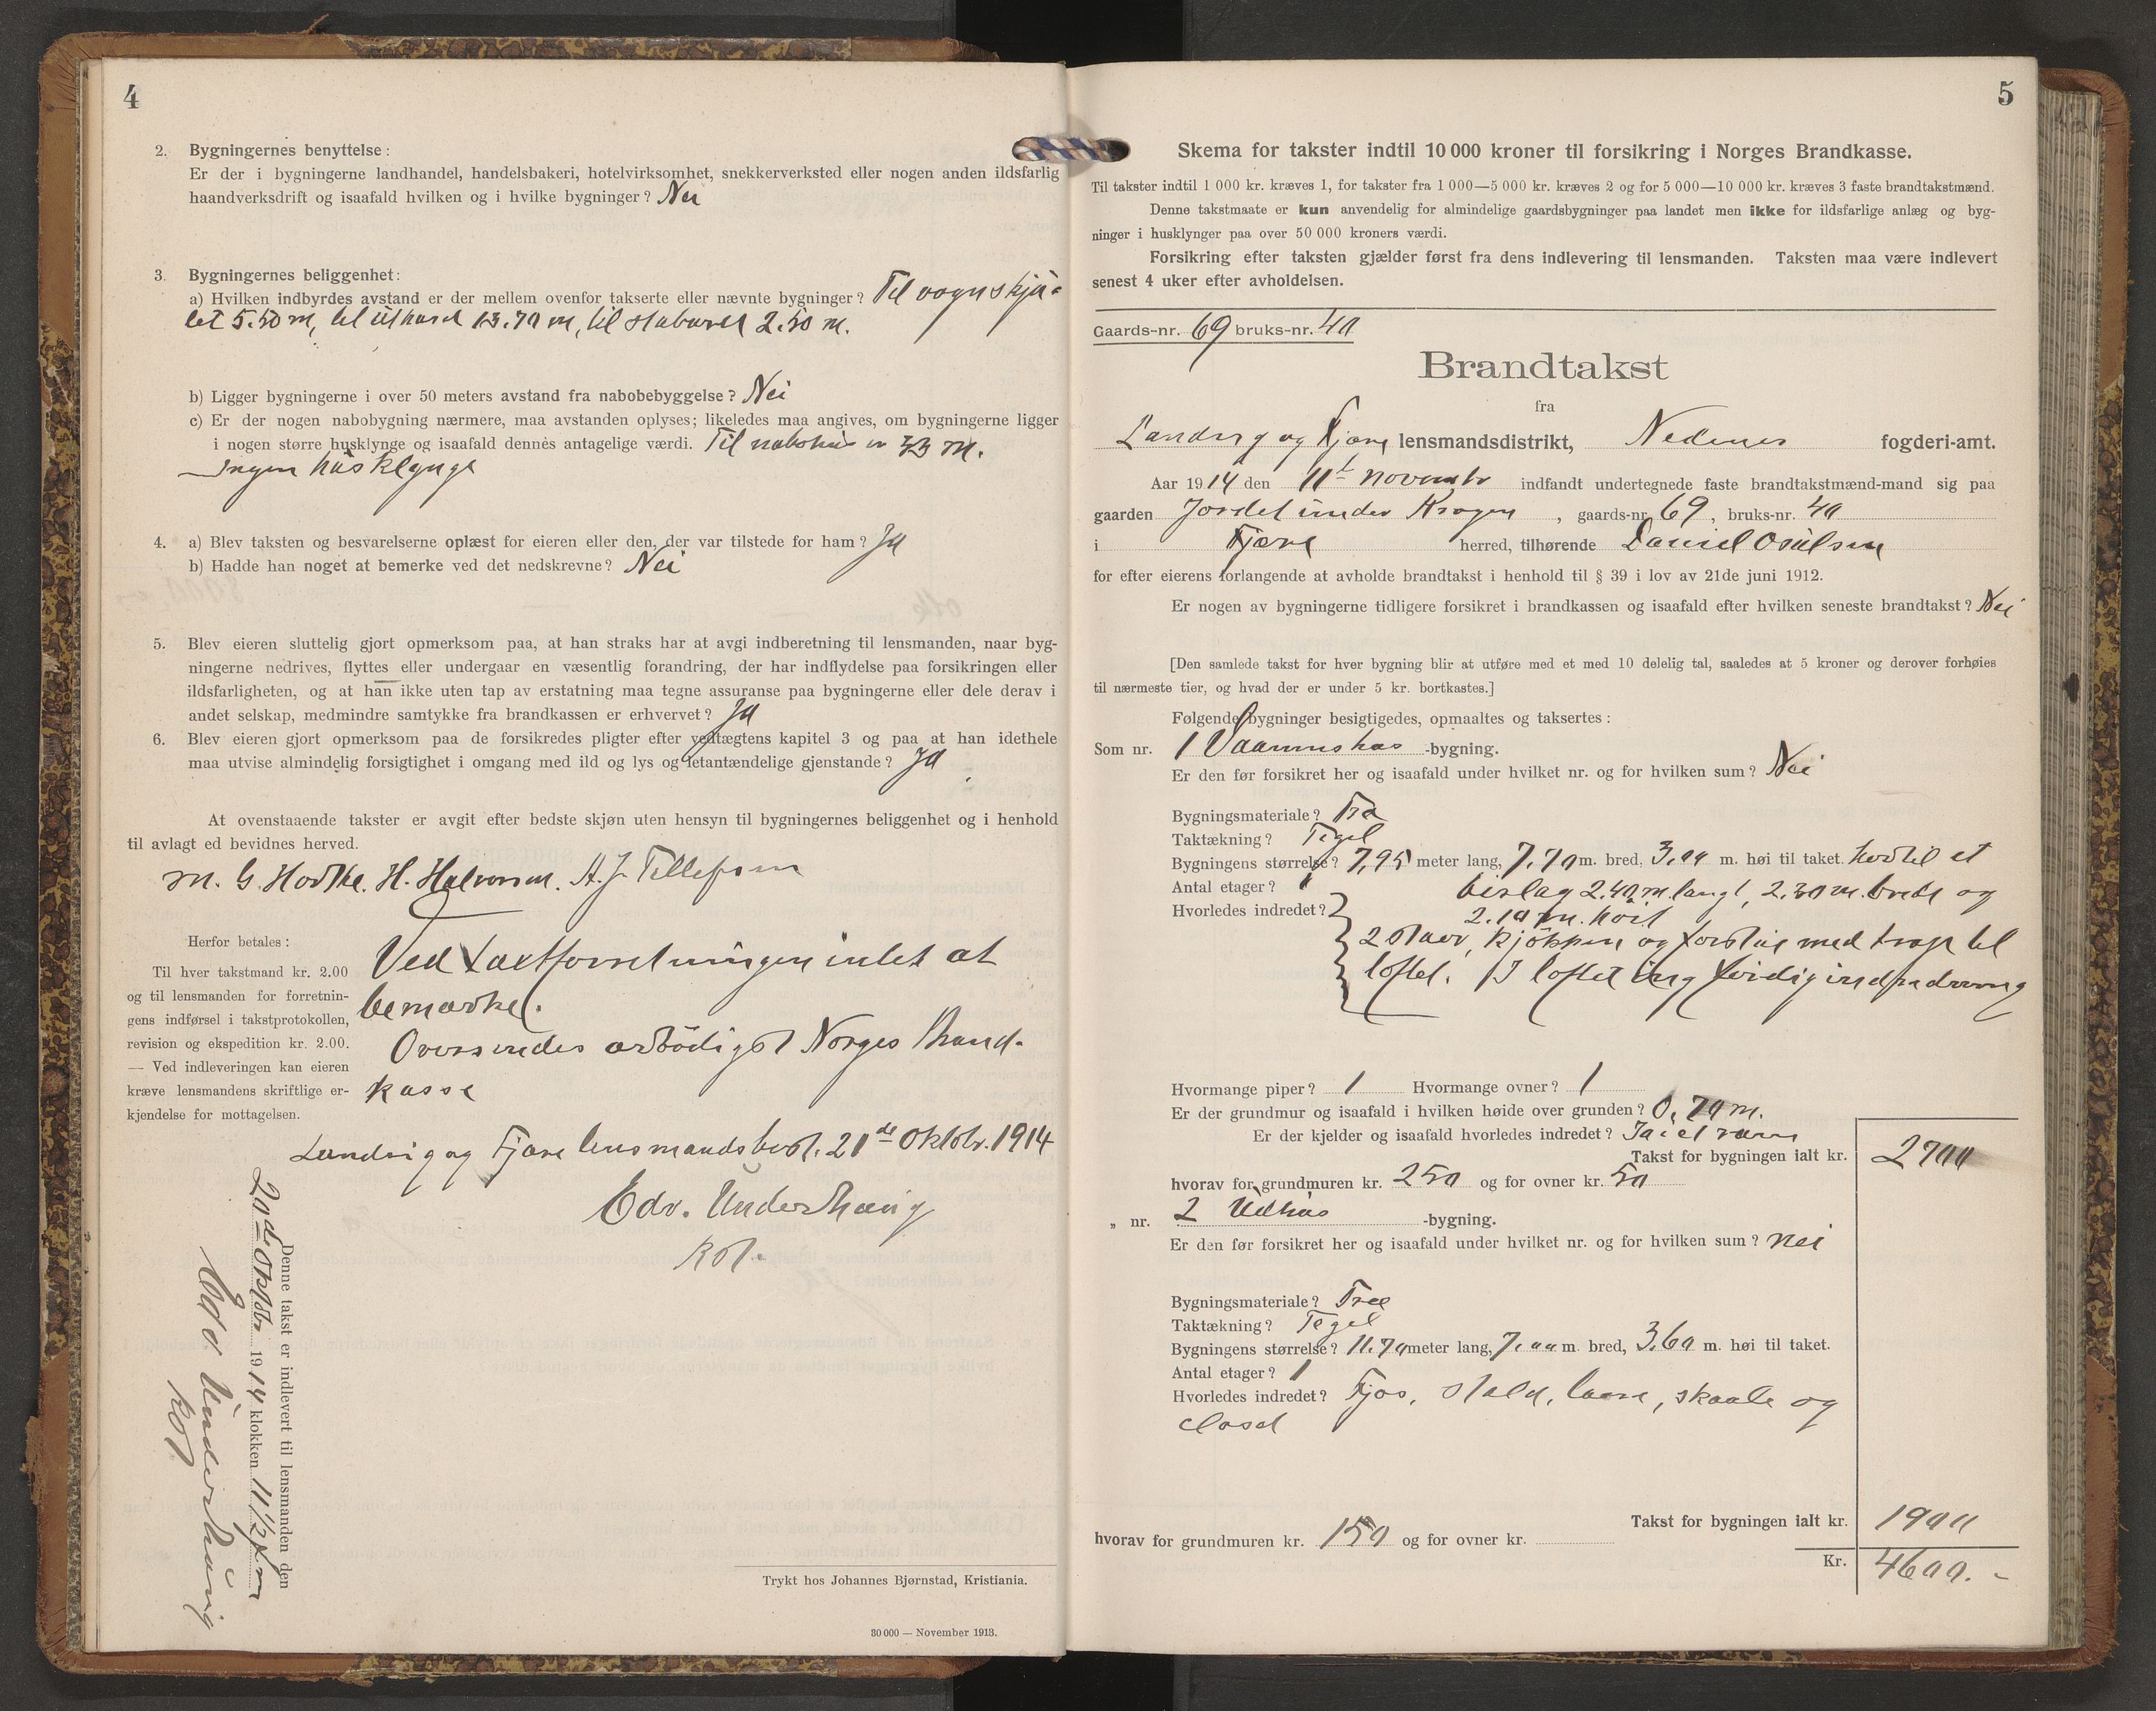 4
2. Bygningernes benyttelse:
Er der i bygningerne landhandel, handelsbakeri, hotelvirksomhet, snekkerverksted eller nogen anden ildsfarlig
haandverksdrift og isaafald hvilken og i hvilke bygninger? Nei
3. Bygningernes beliggenhet:
a) Hvilken indbyrdes avstand er der mellem ovenfor takserte eller nævnte bygninger? Til vognskju-
let 5.50 m, til uthuset 13.70 m, til staburet 2.50 m.
b) Ligger bygningerne i over 50 meters avstand fra nabobebyggelse? Nei
c) Er der nogen nabobygning nærmere, maa avstanden oplyses; likeledes maa angives, om bygningerne ligger
i nogen større husklynge og isaafald dennes antagelige værdi. Til nabohus er 33 m.
Ingen husklynge
4. a) Blev taksten og besvarelserne oplæst for eieren eller den, der var tilstede for ham? Ja
b) Hadde han noget at bemerke ved det nedskrevne? Nei
5. Blev eieren sluttelig gjort opmerksom paa, at han straks har at avgi indberetning til lensmanden, naar byg-
ningerne nedrives, flyttes eller undergaar en væsentlig forandring, der har indflydelse paa forsikringen eller
ildsfarligheten, og at han ikke uten tap av erstatning maa tegne assuranse paa bygningerne eller dele derav i
andet selskap, medmindre samtykke fra brandkassen er erhvervet? Ja
6. Blev eieren gjort opmerksom paa de forsikredes pligter efter vedtægtens kapitel 3 og paa at han idethele
maa utvise almindelig forsigtighet i omgang med ild og lys og letantændelige gjenstande? Ja.
At ovenstaaende takster er avgit efter bedste skjøn uten hensyn til bygningernes beliggenhet og i henhold
til avlagt ed bevidnes herved.
M. G. H. Halvorsen. A. J. Tellefsen
Herfor betales:
Til hver takstmand kr. 2.00
og til lensmanden for forretnin-
gens indførsel i takstprotokollen,
revision og ekspedition kr. 2.00.
— Ved indleveringen kan eieren
kræve lensmandens skriftlige er-
kjendelse for mottagelsen.
Ved taxtforretningen intet at
bemærke.
Oversendes ærbödigst Norges Brand-
kasse
Landvig og Fjære lensmandsbest. 21de Oktobr. 1914
Edv. Underhaug
kst.
Denne takst er indlevert til lensmanden den
20de Oktbr 1914 klokken 11 1/2 fm
Edv Underhaug
kst
Trykt hos Johannes Bjørnstad, Kristiania.
30 000 — November 1913.
5
Skema for takster indtil 10 000 kroner til forsikring i Norges Brandkasse.
Til takster indtil 1 000 kr. kræves 1, for takster fra 1 000—5 000 kr. kræves 2 og for 5 000—10 000 kr. kræves 3 faste brandtakstmænd.
Denne takstmaate er kun anvendelig for almindelige gaardsbygninger paa landet men ikke for ildsfarlige anlæg og byg-
ninger i husklynger paa over 50 000 kroners værdi.
Forsikring efter taksten gjælder først fra dens indlevering til lensmanden. Taksten maa være indlevert
senest 4 uker efter avholdelsen.
Gaards-nr. 69 bruks-nr. 40
Brandtakst
fra
Landvig og Fjære lensmandsdistrikt, Nedenes fogderi-amt.
Aar 1914 den 11t november indfandt undertegnede faste brandtakstmænd-mand sig paa
gaarden Jordet under Kragen, gaards-nr. 69, bruks-nr. 40
i Fjære herred, tilhørende Daniel Osulsen
for efter eierens forlangende at avholde brandtakst i henhold til § 39 i lov av 21de juni 1912.
Er nogen av bygningerne tidligere forsikret i brandkassen og isaafald efter hvilken seneste brandtakst? Nei
[Den samlede takst for hver bygning blir at utføre med et med 10 delelig tal, saaledes at 5 kroner og derover forhøies
til nærmeste tier, og hvad der er under 5 kr. bortkastes.]
Følgende bygninger besigtigedes, opmaaltes og taksertes:
Som nr. 1 Vaaningshus -bygning.
Er den før forsikret her og isaafald under hvilket nr. og for hvilken sum? Nei
Bygningsmateriale? Træ
Taktækning? Tegel
Bygningens størrelse? 7,95 meter lang, 7.70 m. bred, 3.00 m. høi til taket. hertil et
Antal etager? 1 bislag 2.40 m. langt, 2.30 m. bredt og
Hvorledes indredet? 2.10 m. höit
2 stuer, kjökken og forstue med trap til
loftet. I loftet ing færdig indredning
Hvormange piper? 1 Hvormange ovner? 1
Er der grundmur og isaafald i hvilken høide over grunden? 0.70 m.
Er der kjelder og isaafald hvorledes indredet? Ja et rum
Takst for bygningen ialt kr. 2700
hvorav for grundmuren kr. 250 og for ovner kr. 50
„ nr. 2 Udhus -bygning.
Er den før forsikret her og isaafald under hvilket nr. og for hvilken sum? nei
Bygningsmateriale? Træ
Taktækning? Tegel
Bygningens størrelse? 11.70 meter lang, 7.00 m. bred, 3.60 m. høi til taket.
Antal etager? 1
Hvorledes indredet? Fjøs, stald, laave, skaale og
closet
Takst for bygningen ialt kr. 1900
hvorav for grundmuren kr. 150 og for ovner kr.
Kr. 4600.-